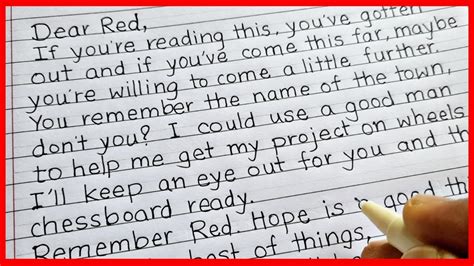 Dear Red,
If you're reading this, you've gotten
out and if you've come this far, maybe
you're willing to come a little further.
You remember the name of the town,
don't you? I could use a good man
to help me get my project on wheels
I'll keep an eye out for you and th
chessboard ready.
Remember Red. Hope is a good thi
best of things,